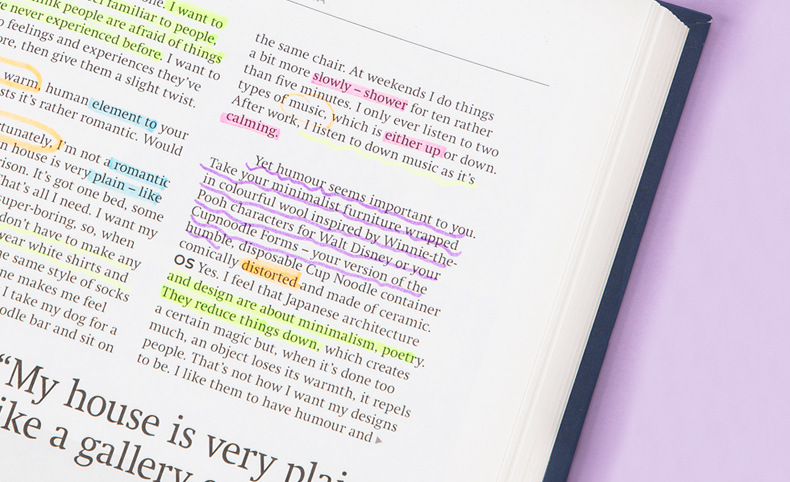 one. I want to
familiar to people,
think people are afraid of things
never experienced before. I want to
feelings and experiences they've
then give them a slight twist.
warm, human element to your
it's rather romantic. Would
I'm not a romantic
house is very plain – like
It's got one bed, some
That's all I need. I want my
so, when
don't have to make any
wear white shirts and
same style of socks
makes me feel
I take my dog for a
bar and sit on
the same chair. At weekends I do things
a bit more slowly – shower for ten rather
than five minutes. I only ever listen to two
types of music, which is either up or down.
After work, I listen to down music as it's
calming.
Yet humour seems important to you.
Take your minimalist furniture wrapped
in colourful wool inspired by Winnie-the-
Pooh characters for Walt Disney or your
Cupnoodle Forms – your version of the
humble, disposable Cup Noodle container
comically distorted and made of ceramic.
OS Yes. I feel that Japanese architecture
and design are about minimalism, poetry.
They reduce things down, which creates
a certain magic but, when it's done too
much, an object loses its warmth, it repels
people. That's not how I want my designs
to be. I like them to have humour and
“My house is very
like a gallery